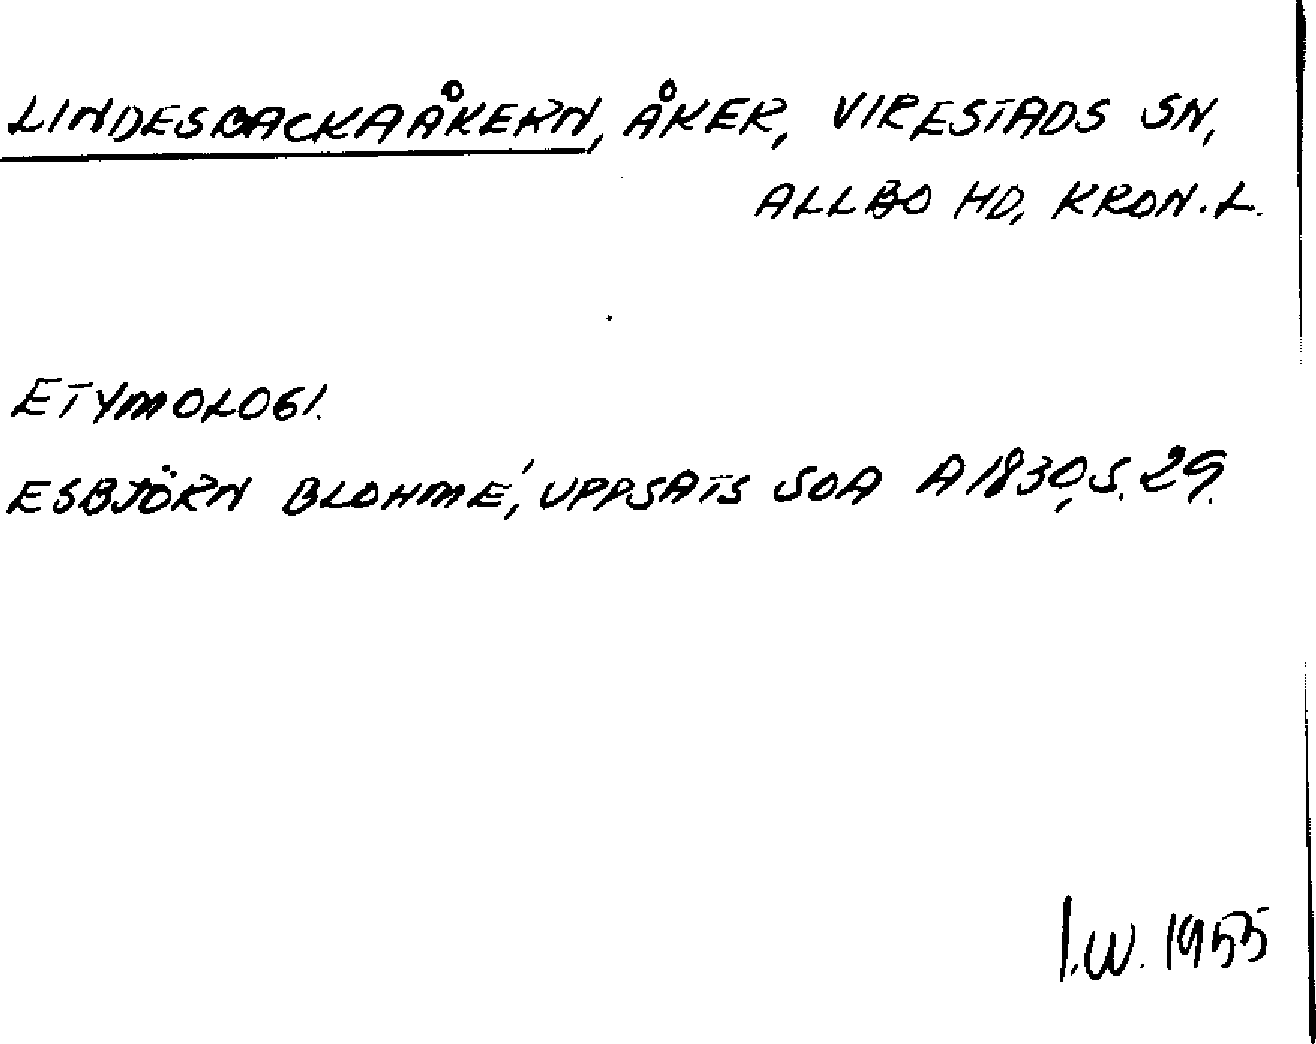 LINDESBACKAÅKERN, ÅKER, VIRESTADS SN,
ALLBO HD, KRON.L.
ETYMOLOGI.
ESBJÖRN BLOHMÉ, UPPSATS SOA A 1830, S. 29.
I.W. 1955